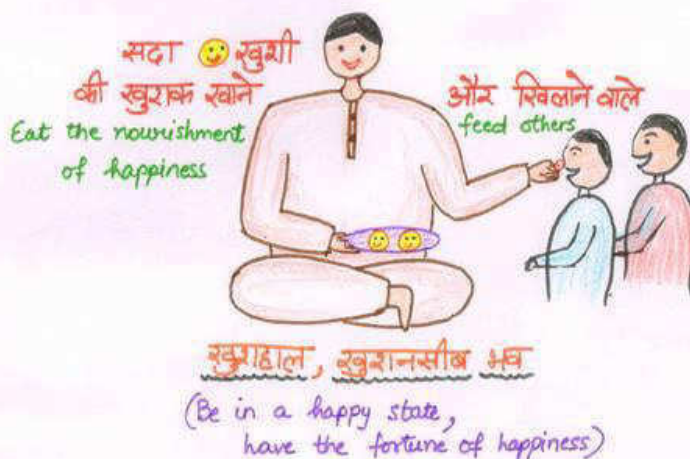 सदा खुशी
की खुराक खाने
Eat the nourishment
of happiness
और खिलाने वाले
feed others
खुशहाल, खुशनसीब भव
(Be in a happy state,
have the fortune of happiness)